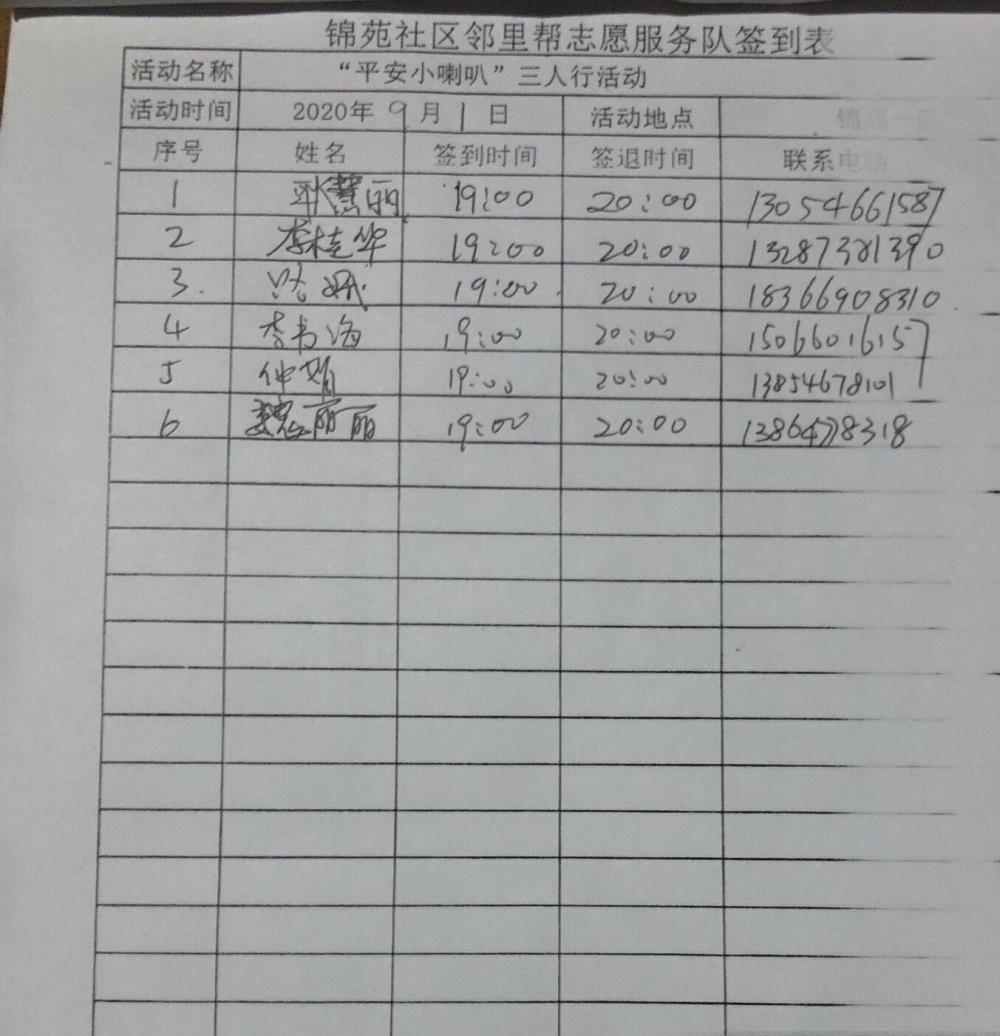 锦苑社区邻里帮志愿服务队签到表
活动名称 “平安小喇叭”三人行活动
活动时间 2020年9月1日 活动地点 锦苑一区
序号 姓名 签到时间 签退时间 联系电话
1 耿慧丽 19:00 20:00 13054661587
2 李桂华 19:00 20:00 13287321390
3. 19:00 20:00 18366908310
4 李书海 19:00 20:00 15066016157
5 仲娟 19:00 20:00 13854678101
6 魏丽丽 19:00 20:00